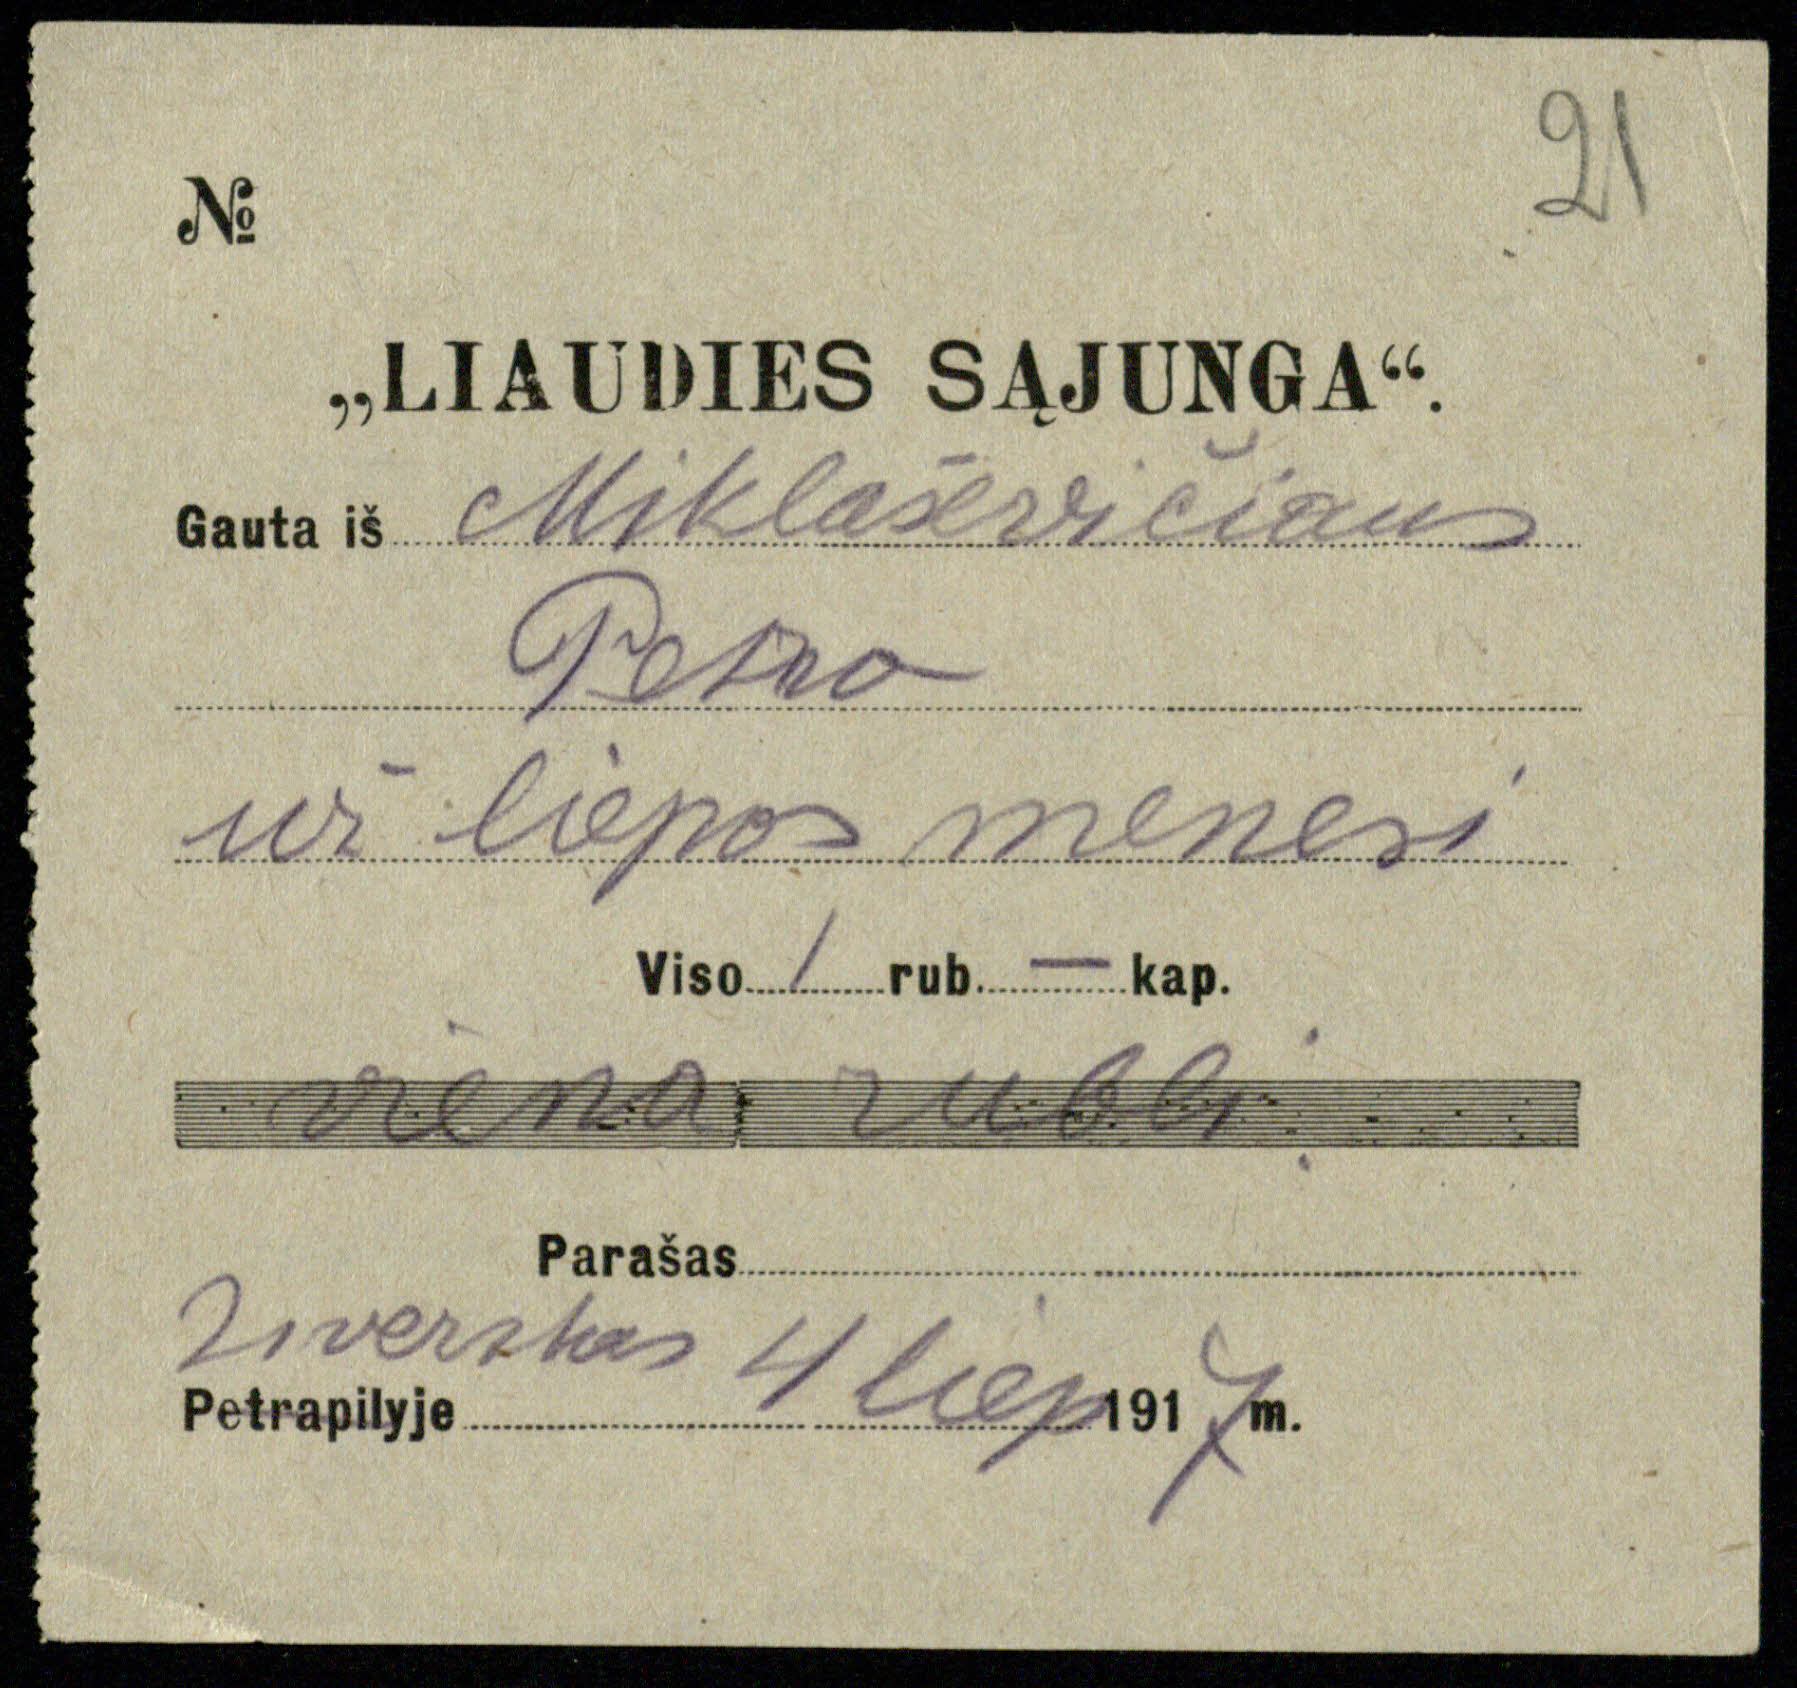 21
№
„LIAUDIES SĄJUNGA“.
Gauta iš Miklaševičiaus
Petro
už liepos menesi
Viso 1 rub. — kap.
viena rublį
Parašas
4 liep
Petrapilyje 1917 m.